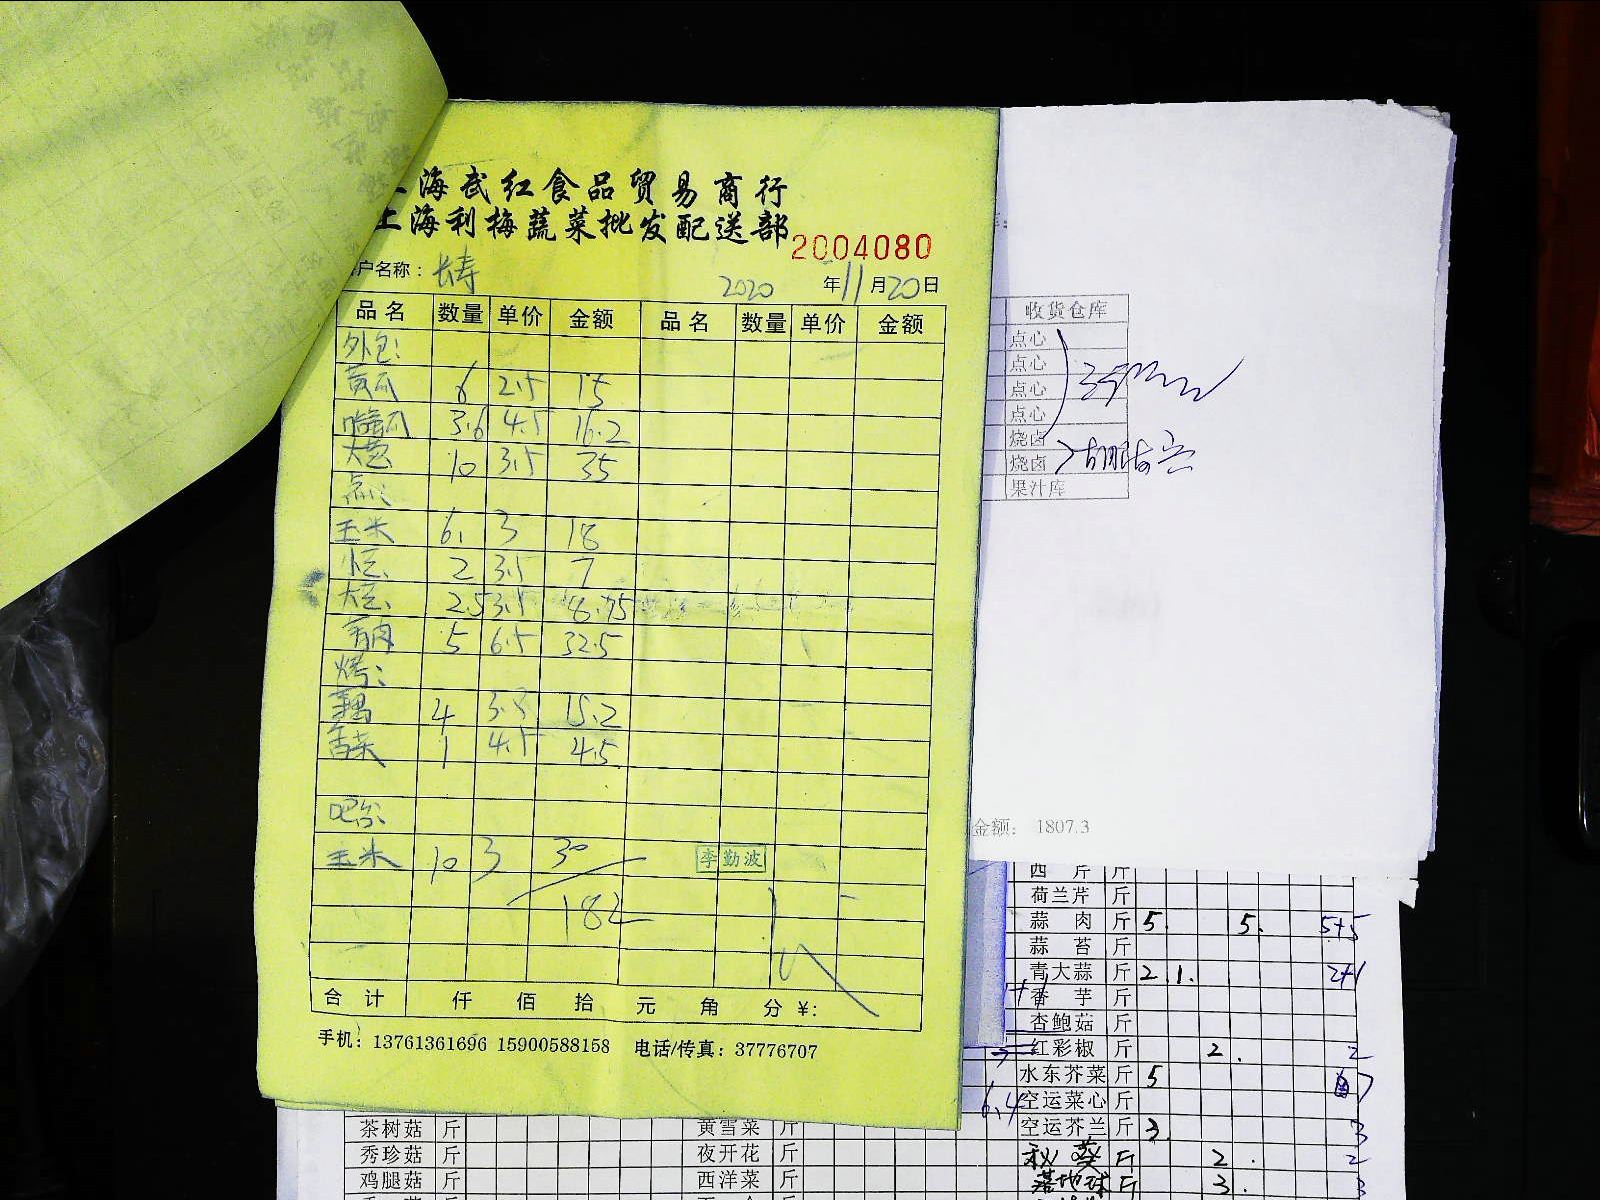 上海武红食品贸易商行
上海利梅蔬菜批发配送部
2004080
户名称：长寿 2020年11月20日
品名 数量 单价 金额 品名 数量 单价 金额
外包：
黄瓜 6 2.5 15
3.6 4.5 16.2
10 3.5 35
点：
玉米 6. 3 18
2 3.5 7
2.5 3.5 8.75
5 6.5 32.5
烤：
4 3.8 15.2
香菜 1 4.5 4.5
吧台：
玉米 10 3 30
李勤波
182
合计 仟 佰 拾 元 角 分 ¥：
手机：13761361696 15900588158 电话/传真：37776707
收货仓库
点心
点心
点心
点心
烧卤
烧卤
果汁库
金额： 1807.3
西芹 斤
荷兰芹 斤
蒜肉 斤 5. 5. 5+5
蒜苔 斤
青大蒜 斤 2.1. 2+1
香芋 斤
杏鲍菇 斤
红彩椒 斤 2. 2
水东芥菜 斤 5 7
6.4 空运菜心 斤
空运芥兰 斤 3. 3
秋葵 斤 2. 2
落地球 斤 3. 3
茶树菇 斤 黄雪菜 斤
秀珍菇 斤 夜开花 斤
鸡腿菇 斤 西洋菜 斤